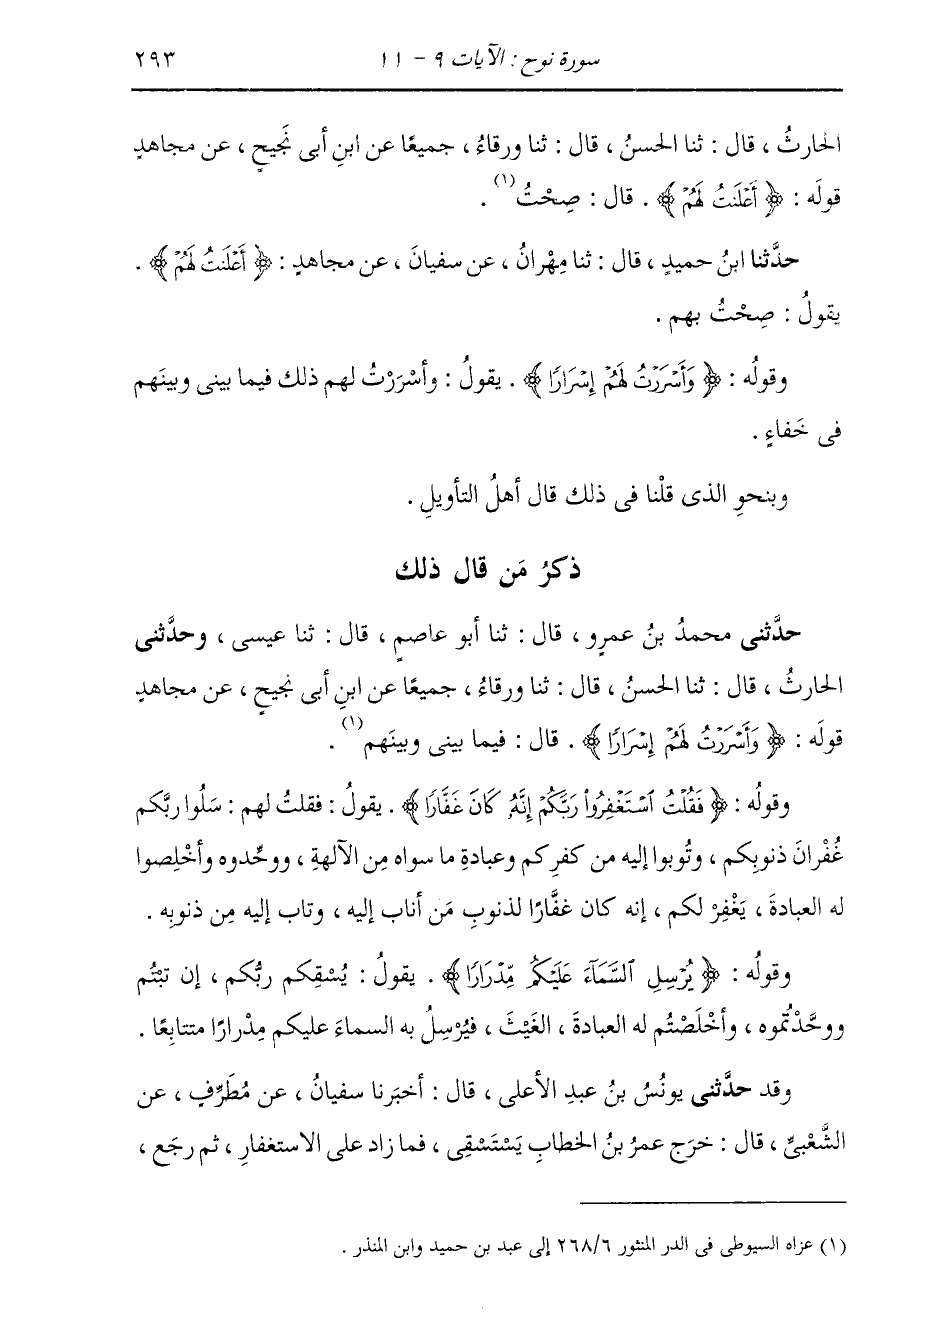 سورة نوح : الآيات ٩ - ١١ ٢٩٣
الحارثُ ، قال : ثنا الحسنُ ، قال : ثنا ورقاءُ ، جميعًا عن ابنِ أبى نَجيحٍ ، عن مجاهدٍ
قولَه : ﴿ أَعْلَنتُ لَهُمْ ﴾ . قال : صِحْتُ(١) .
حدَّثنا ابنُ حميدٍ ، قال : ثنا مِهْرانُ ، عن سفيانَ ، عن مجاهدٍ : ﴿ أَعْلَنتُ لَهُمْ ﴾ .
يقولُ : صِحْتُ بهم .
وقولُه : ﴿ وَأَسْرَرْتُ لَهُمْ إِسْرَارًا ﴾ . يقولُ : وأسْرَرْتُ لهم ذلك فيما بينى وبينَهم
فى خَفاءٍ .
وبنحوِ الذى قلْنا فى ذلك قال أهلُ التأويلِ .
ذكرُ مَن قال ذلك
حدَّثنى محمدُ بنُ عمرٍو ، قال : ثنا أبو عاصمٍ ، قال : ثنا عيسى ، وحدَّثنى
الحارثُ ، قال : ثنا الحسنُ ، قال : ثنا ورقاءُ ، جميعًا عن ابنِ أبى نجيحٍ ، عن مجاهدٍ
قولَه : ﴿ وَأَسْرَرْتُ لَهُمْ إِسْرَارًا ﴾ . قال : فيما بينى وبينَهم(١) .
وقولُه : ﴿ فَقُلْتُ ٱسْتَغْفِرُوا۟ رَبَّكُمْ إِنَّهُۥ كَانَ غَفَّارًا ﴾ . يقولُ : فقلتُ لهم : سَلُوا ربَّكم
غُفْرانَ ذنوبِكم ، وتُوبوا إليه من كفرِكم وعبادةِ ما سواه مِن الآلهةِ ، ووحِّدوه وأخْلِصوا
له العبادةَ ، يَغْفِرْ لكم ، إنه كان غفَّارًا لذنوبِ مَن أناب إليه ، وتاب إليه مِن ذنوبِه .
وقولُه : ﴿ يُرْسِلِ ٱلسَّمَآءَ عَلَيْكُم مِّدْرَارًا ﴾ . يقولُ : يُسْقِكم ربُّكم ، إن تبْتُم
ووحَّدْتُموه ، وأخْلَصْتُم له العبادةَ ، الغَيْثَ ، فيُرْسِلُ به السماءَ عليكم مِدْرارًا متتابعًا .
وقد حدَّثنى يونُسُ بنُ عبدِ الأعلى ، قال : أخبَرنا سفيانُ ، عن مُطَرِّفٍ ، عن
الشَّعْبىِّ ، قال : خرَج عمرُ بنُ الخطابِ يَسْتَسْقِى ، فما زاد على الاستغفارِ ، ثم رجَع ،
(١) عزاه السيوطى فى الدر المنثور ٢٦٨/٦ إلى عبد بن حميد وابن المنذر .